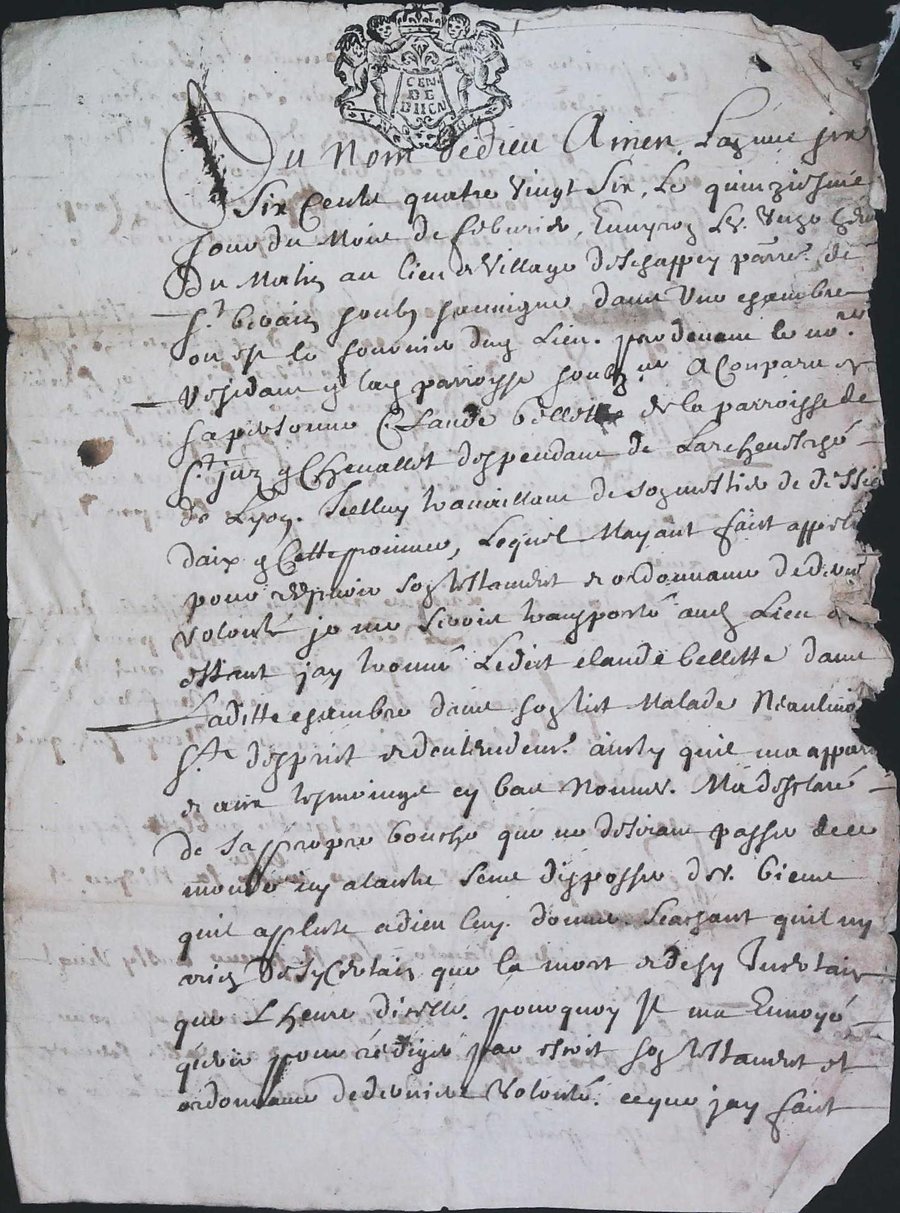 CEN
DE
DIION
Au Nom de dieu Amen Lan mil
Six Cents quatre vingt six, Le quinziesme
Jour du Mois de febvrier, Environ les unze
Du Matin au lieu et Village parre. de
dans une chambre
ou est le dud Lieu. pardevant le nore
Residant en lad parroisse soubzne A Comparu en
sa personne Claude bellotte de la parroisse de
St Jux despendant de Larchevesché
de Lyon. Icelluy travaillant de son mestier de
daix en Cette province, Lequel Mayant faict appeller
pour recepvoir son testament et ordonnance de
volonté je me serois transporté aud Lieu
estant jay trouvé Ledict claude bellotte dans
Laditte chambre dans son lict Malade Neaulmoings
desprict et dentendement ainsy quil ma apparu
et aux tesmoings cy bas Nommes. Ma desclaré
de sa propre bouche que ne desirant passer de ce
monde en alaultre sens dispposer des biens
quil a pleust a dieu luy donner. scachant quil ny
rien de sy Certain que la mort et de sy Incertain
que Lheure dicelle. pourquoy Il ma Envoyé
querir pour rediger par escrit son testament et
ordonnance de derniere volonté. ce que jay faict